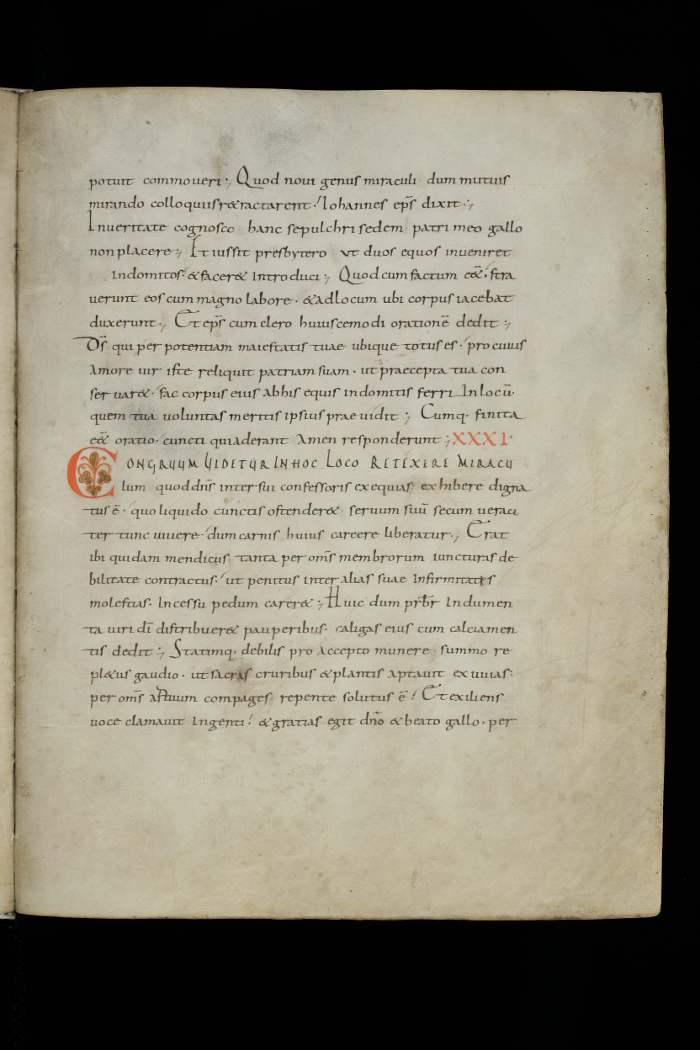 47
potuit commoveri:, Quod novi genus miraculi dum mutuis
mirando colloquiis r&ractarent. Iohannes ep̄s dixit:,
Inveritate cognosco hanc sepulchri sedem patri meo gallo
non placere:, Et iussit presbytero ut duos equos inveniret
indomitos. & facer& introduci:, Quod cum factum eē&. stra
verunt eos cum magno labore. & ad locum ubi corpus iacebat
duxerunt:, Et ep̄s cum clero huiuscemodi orationē dedit:,
Dš qui per potentiam maiestatis tuae ubique totus es. pro cuius
Amore vir iste reliquit patriam suam. ut praecepta tua con
servar&. fac corpus eius ab his equis indomitis ferri Inlocū.
quem tua voluntas meritis ipsius praevidit:, Cumq. finita
eē& oratio. cuncti qui aderant Amen responderunt:, XXXI.
CONGRUUM VIDETUR IN HOC LOCO RETEXERE MIRACU
lum quod dn̄s inter sui confessoris exequias exhibere digna
tus ē. quo liquido cunctis ostender& servum suū secum veraci
ter tunc vivere. dum carnis huius carcere liberatur., Erat
ibi quidam mendicus tanta per om̄s membrorum iuncturas de
bilitate contractus. ut penitus inter alias suae Infirmitatis
molestias. Incessu pedum carer&:, Huic dum pr̄br Indumen
ta viri dī distribuer& pauperibus. caligas eius cum calciamen
tis dedit:, Statimq. debilis pro Accepto munere. summo re
pl&us gaudio. ut sacras cruribus & plantis aptavit exuvias:
per om̄s artuum compages repente solutus ē. Et exiliens
voce clamavit Ingenti. & gratias egit dn̄o & beato gallo. per